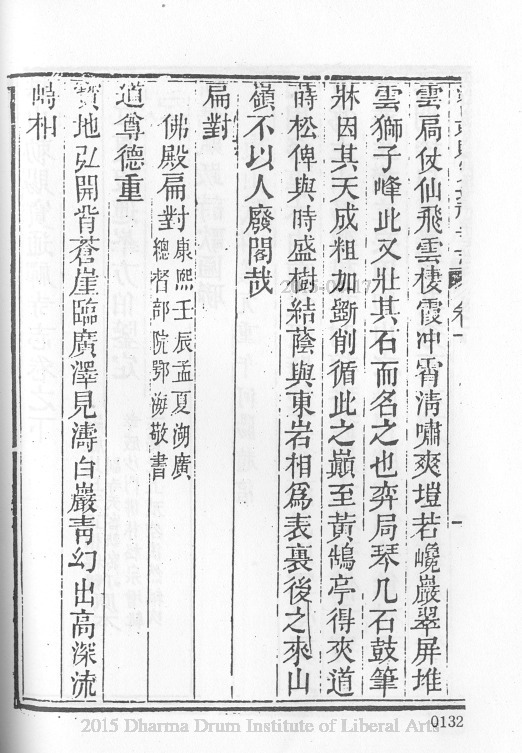 雲扃仗仙飛雲棲霞冲霄淸嘯爽塏若巉巖翠屏堆
雲獅子峰此又壯其石而名之也弈局琴几石鼓筆
牀因其天成粗加斵削循此之巔至黃鵠亭得夾道
蒔松俾與時盛樹結蔭與東岩相爲表裏後之來山
嶺不以人廢閣哉
扁對
佛殿扁對康熙壬辰孟夏湖廣
總督部院鄂海敬書
道尊德重
寳地弘開背蒼崖臨廣澤見濤白巖靑幻出高深流
峙相
2015 Dharma Drum Institute of Liberal Arts
0132